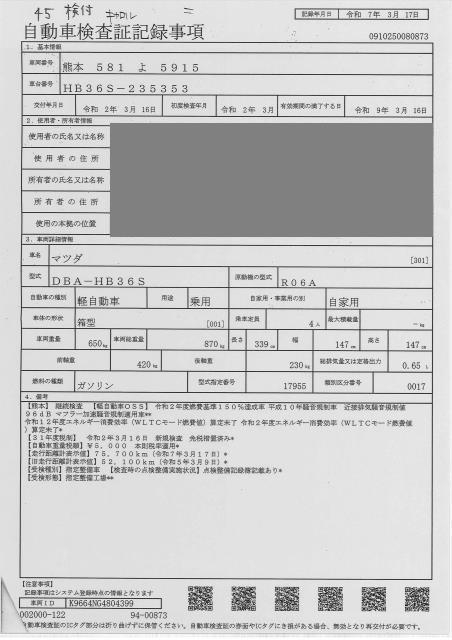 45 検付 キャロル ニ
記録年月日 令和 7年 3月 17日
自動車検査証記録事項
0910250080873
1. 基本情報
車両番号 熊本 581 よ 5915
車台番号 HB36S-235353
交付年月日 令和 2年 3月 16日 初度検査年月 令和 2年 3月 有効期間の満了する日 令和 9年 3月 16日
2. 使用者・所有者情報
使用者の氏名又は名称
使用者の住所
所有者の氏名又は名称
所有者の住所
使用の本拠の位置
3. 車両詳細情報
車名 マツダ [301]
型式 DBA-HB36S 原動機の型式 R06A
自動車の種別 軽自動車 用途 乗用 自家用・事業用の別 自家用
車体の形状 箱型 [001] 乗車定員 4人 最大積載量 -kg
車両重量 650kg 車両総重量 870kg 長さ 339cm 幅 147cm 高さ 147cm
前軸重 420kg 後軸重 230kg 総排気量又は定格出力 0.65 L
燃料の種類 ガソリン 型式指定番号 17955 類別区分番号 0017
4. 備考
【熊本】 継続検査 【軽自動車OSS】 令和2年度燃費基準150%達成車 平成10年騒音規制車 近接排気騒音規制値
96dB マフラー加速騒音規制適用車**
令和12年度エネルギー消費効率(WLTCモード燃費値)算定未了 令和2年度エネルギー消費効率(WLTCモード燃費値
)算定未了*
【31年度税制】 令和2年3月16日 新規検査 免税措置済み*
【自動車重量税額】¥5,000 本則税率適用*
【走行距離計表示値】75,700km(令和7年3月17日)*
【旧走行距離計表示値】52,100km(令和5年3月9日)*
【受検種別】指定整備車 【検査時の点検整備実施状況】点検整備記録簿記載あり*
【受検形態】指定整備工場**
【注意事項】
記録事項はシステム登録時点の情報となります
車両ID K9664NG4804399
002000-122 94-00873
自動車検査証のICタグ部分は折り曲げずに保管ください。自動車検査証の券面やICタグにき損がある場合、無効となり再交付が必要です。